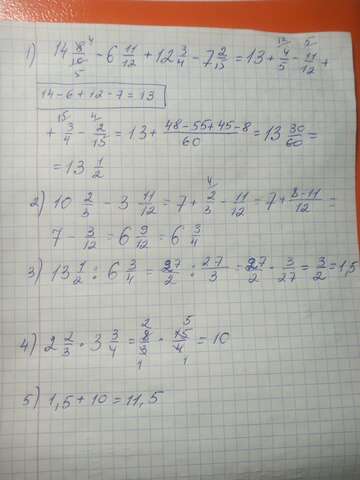 1) 14 8/10 - 6 11/12 + 12 3/4 - 7 2/15 = 13 + 4/5 - 11/12 +
14 - 6 + 12 - 7 = 13
+ 3/4 - 2/15 = 13 + (48 - 55 + 45 - 8)/60 = 13 30/60 =
= 13 1/2
2) 10 2/3 - 3 11/12 = 7 + 2/3 - 11/12 = 7 + (8 - 11)/12 =
7 - 3/12 = 6 9/12 = 6 3/4
3) 13 1/2 : 6 3/4 = 27/2 : 27/3 = 27/2 · 3/27 = 3/2 = 1,5
4) 2 2/3 · 3 3/4 = 8/3 · 15/4 = 10
5) 1,5 + 10 = 11,5